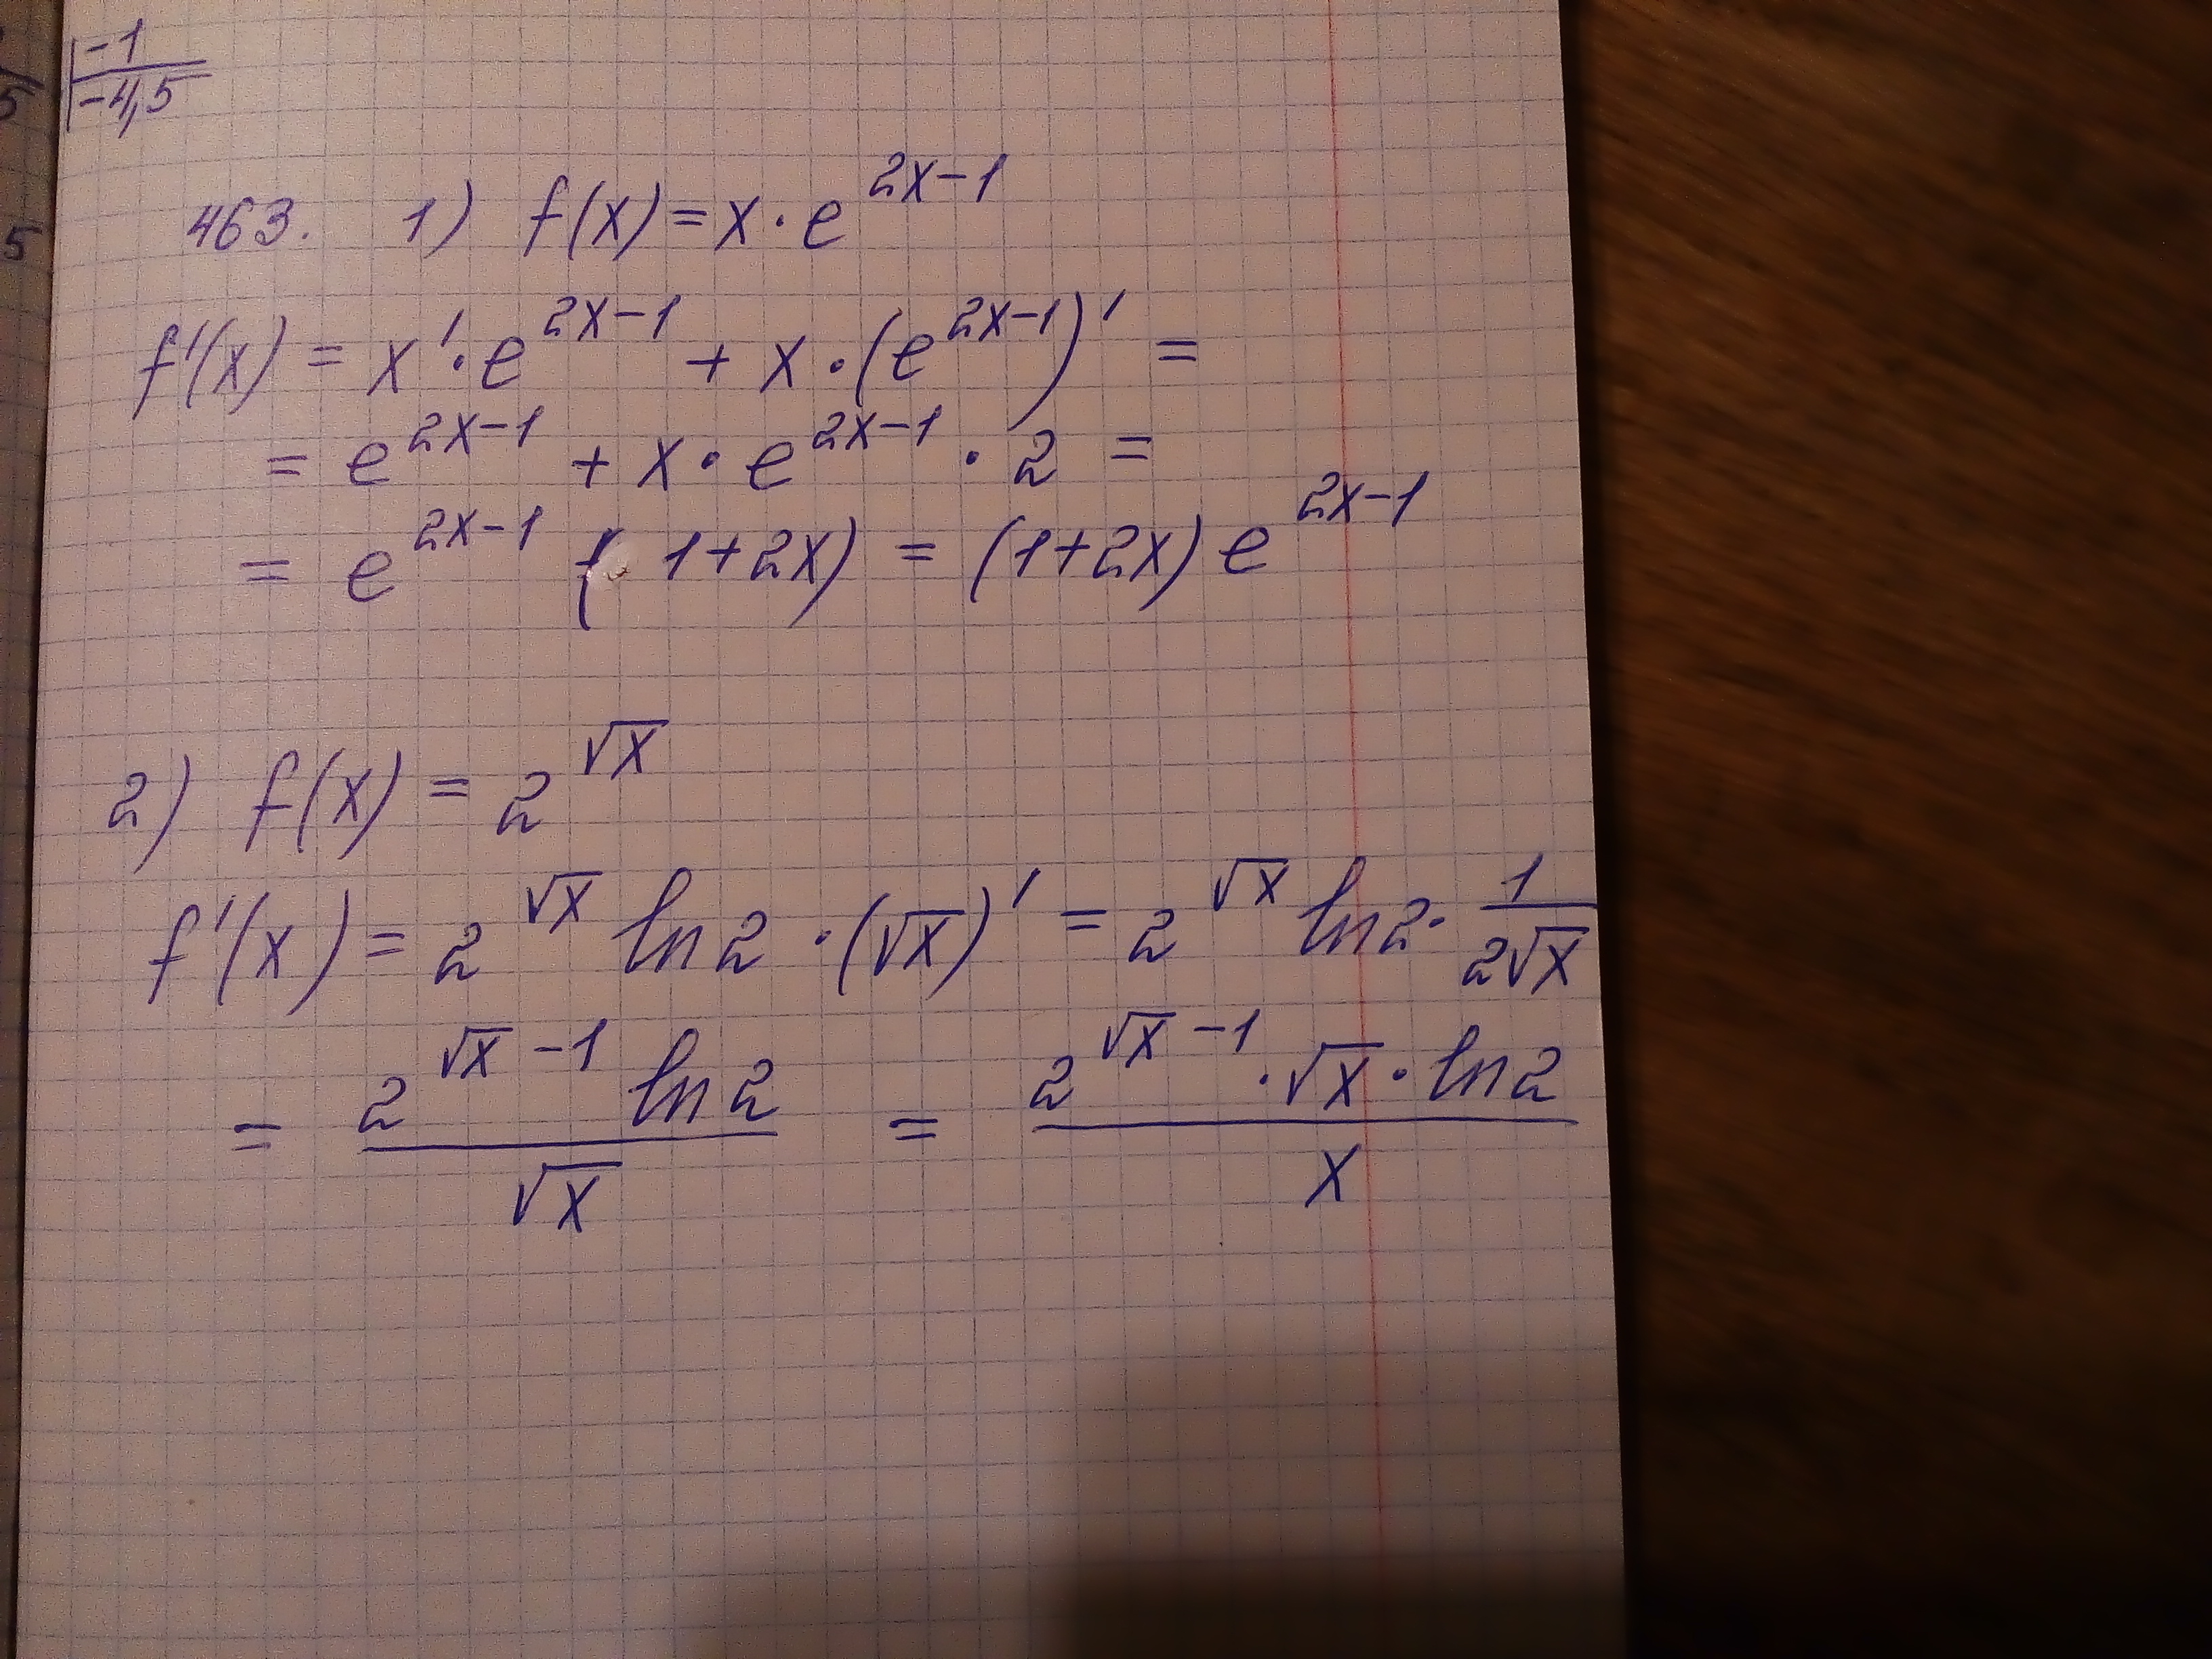 5
-1
-4,5
5
463. 1) f(x) = x · e^{2x-1}
f'(x) = x' · e^{2x-1} + x · (e^{2x-1})' =
= e^{2x-1} + x · e^{2x-1} · 2 =
= e^{2x-1} (1+2x) = (1+2x) e^{2x-1}
2) f(x) = 2^{√x}
f'(x) = 2^{√x} ln 2 · (√x)' = 2^{√x} ln 2 · \frac{1}{2√x}
= \frac{2^{√x -1} ln 2}{√x} = \frac{2^{√x -1} · √x · ln 2}{x}